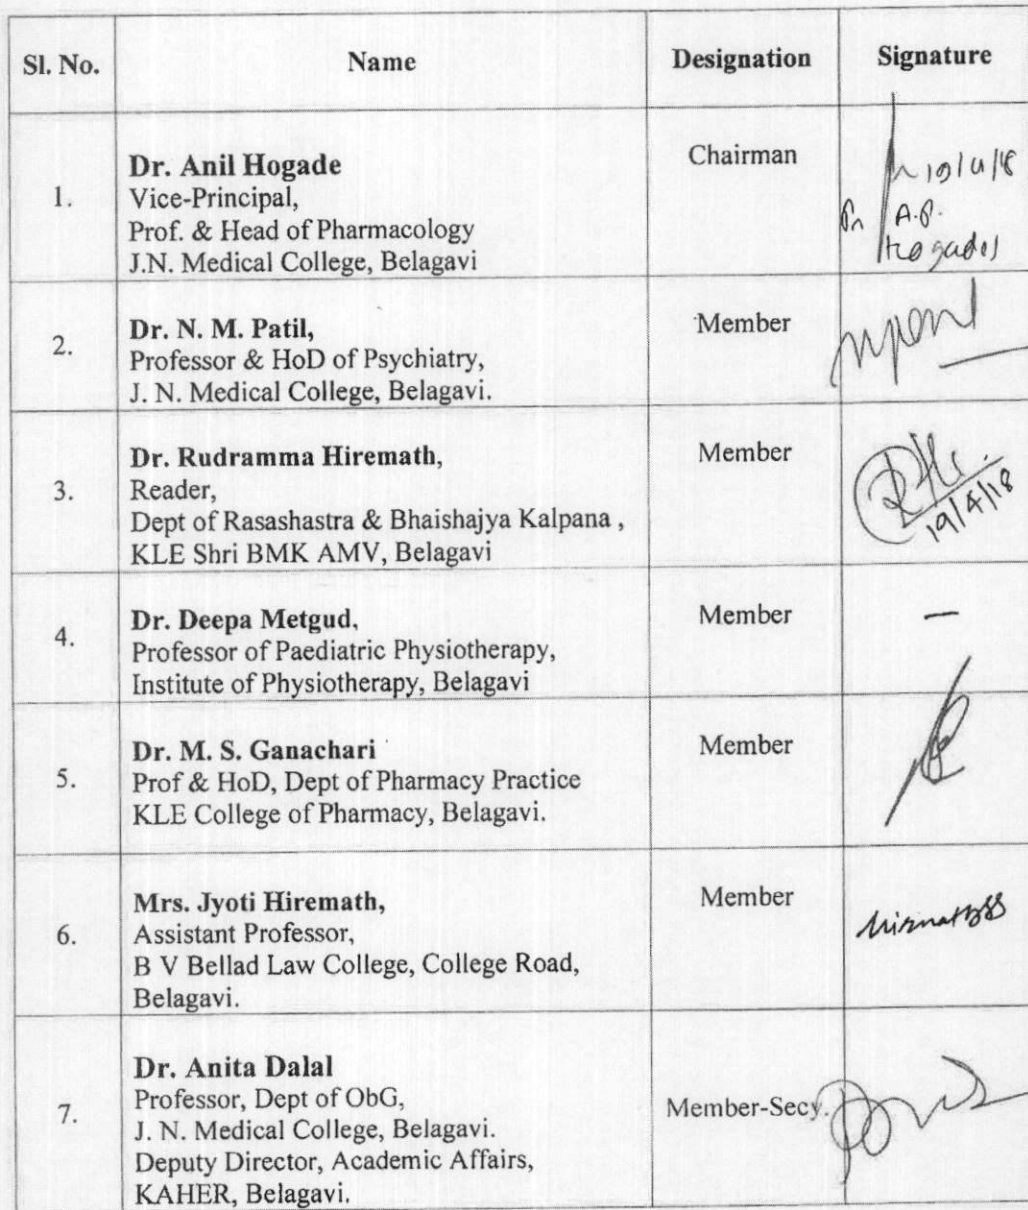 Sl. No. Name Designation Signature
1. Dr. Anil Hogade Chairman
Vice-Principal,
Prof. & Head of Pharmacology
J.N. Medical College, Belagavi
A.P.
2. Dr. N. M. Patil, Member
Professor & HoD of Psychiatry,
J. N. Medical College, Belagavi.
3. Dr. Rudramma Hiremath, Member
Reader,
Dept of Rasashastra & Bhaishajya Kalpana ,
KLE Shri BMK AMV, Belagavi
19/4/18
4. Dr. Deepa Metgud, Member —
Professor of Paediatric Physiotherapy,
Institute of Physiotherapy, Belagavi
5. Dr. M. S. Ganachari Member
Prof & HoD, Dept of Pharmacy Practice
KLE College of Pharmacy, Belagavi.
6. Mrs. Jyoti Hiremath, Member
Assistant Professor,
B V Bellad Law College, College Road,
Belagavi.
7. Dr. Anita Dalal Member-Secy.
Professor, Dept of ObG,
J. N. Medical College, Belagavi.
Deputy Director, Academic Affairs,
KAHER, Belagavi.